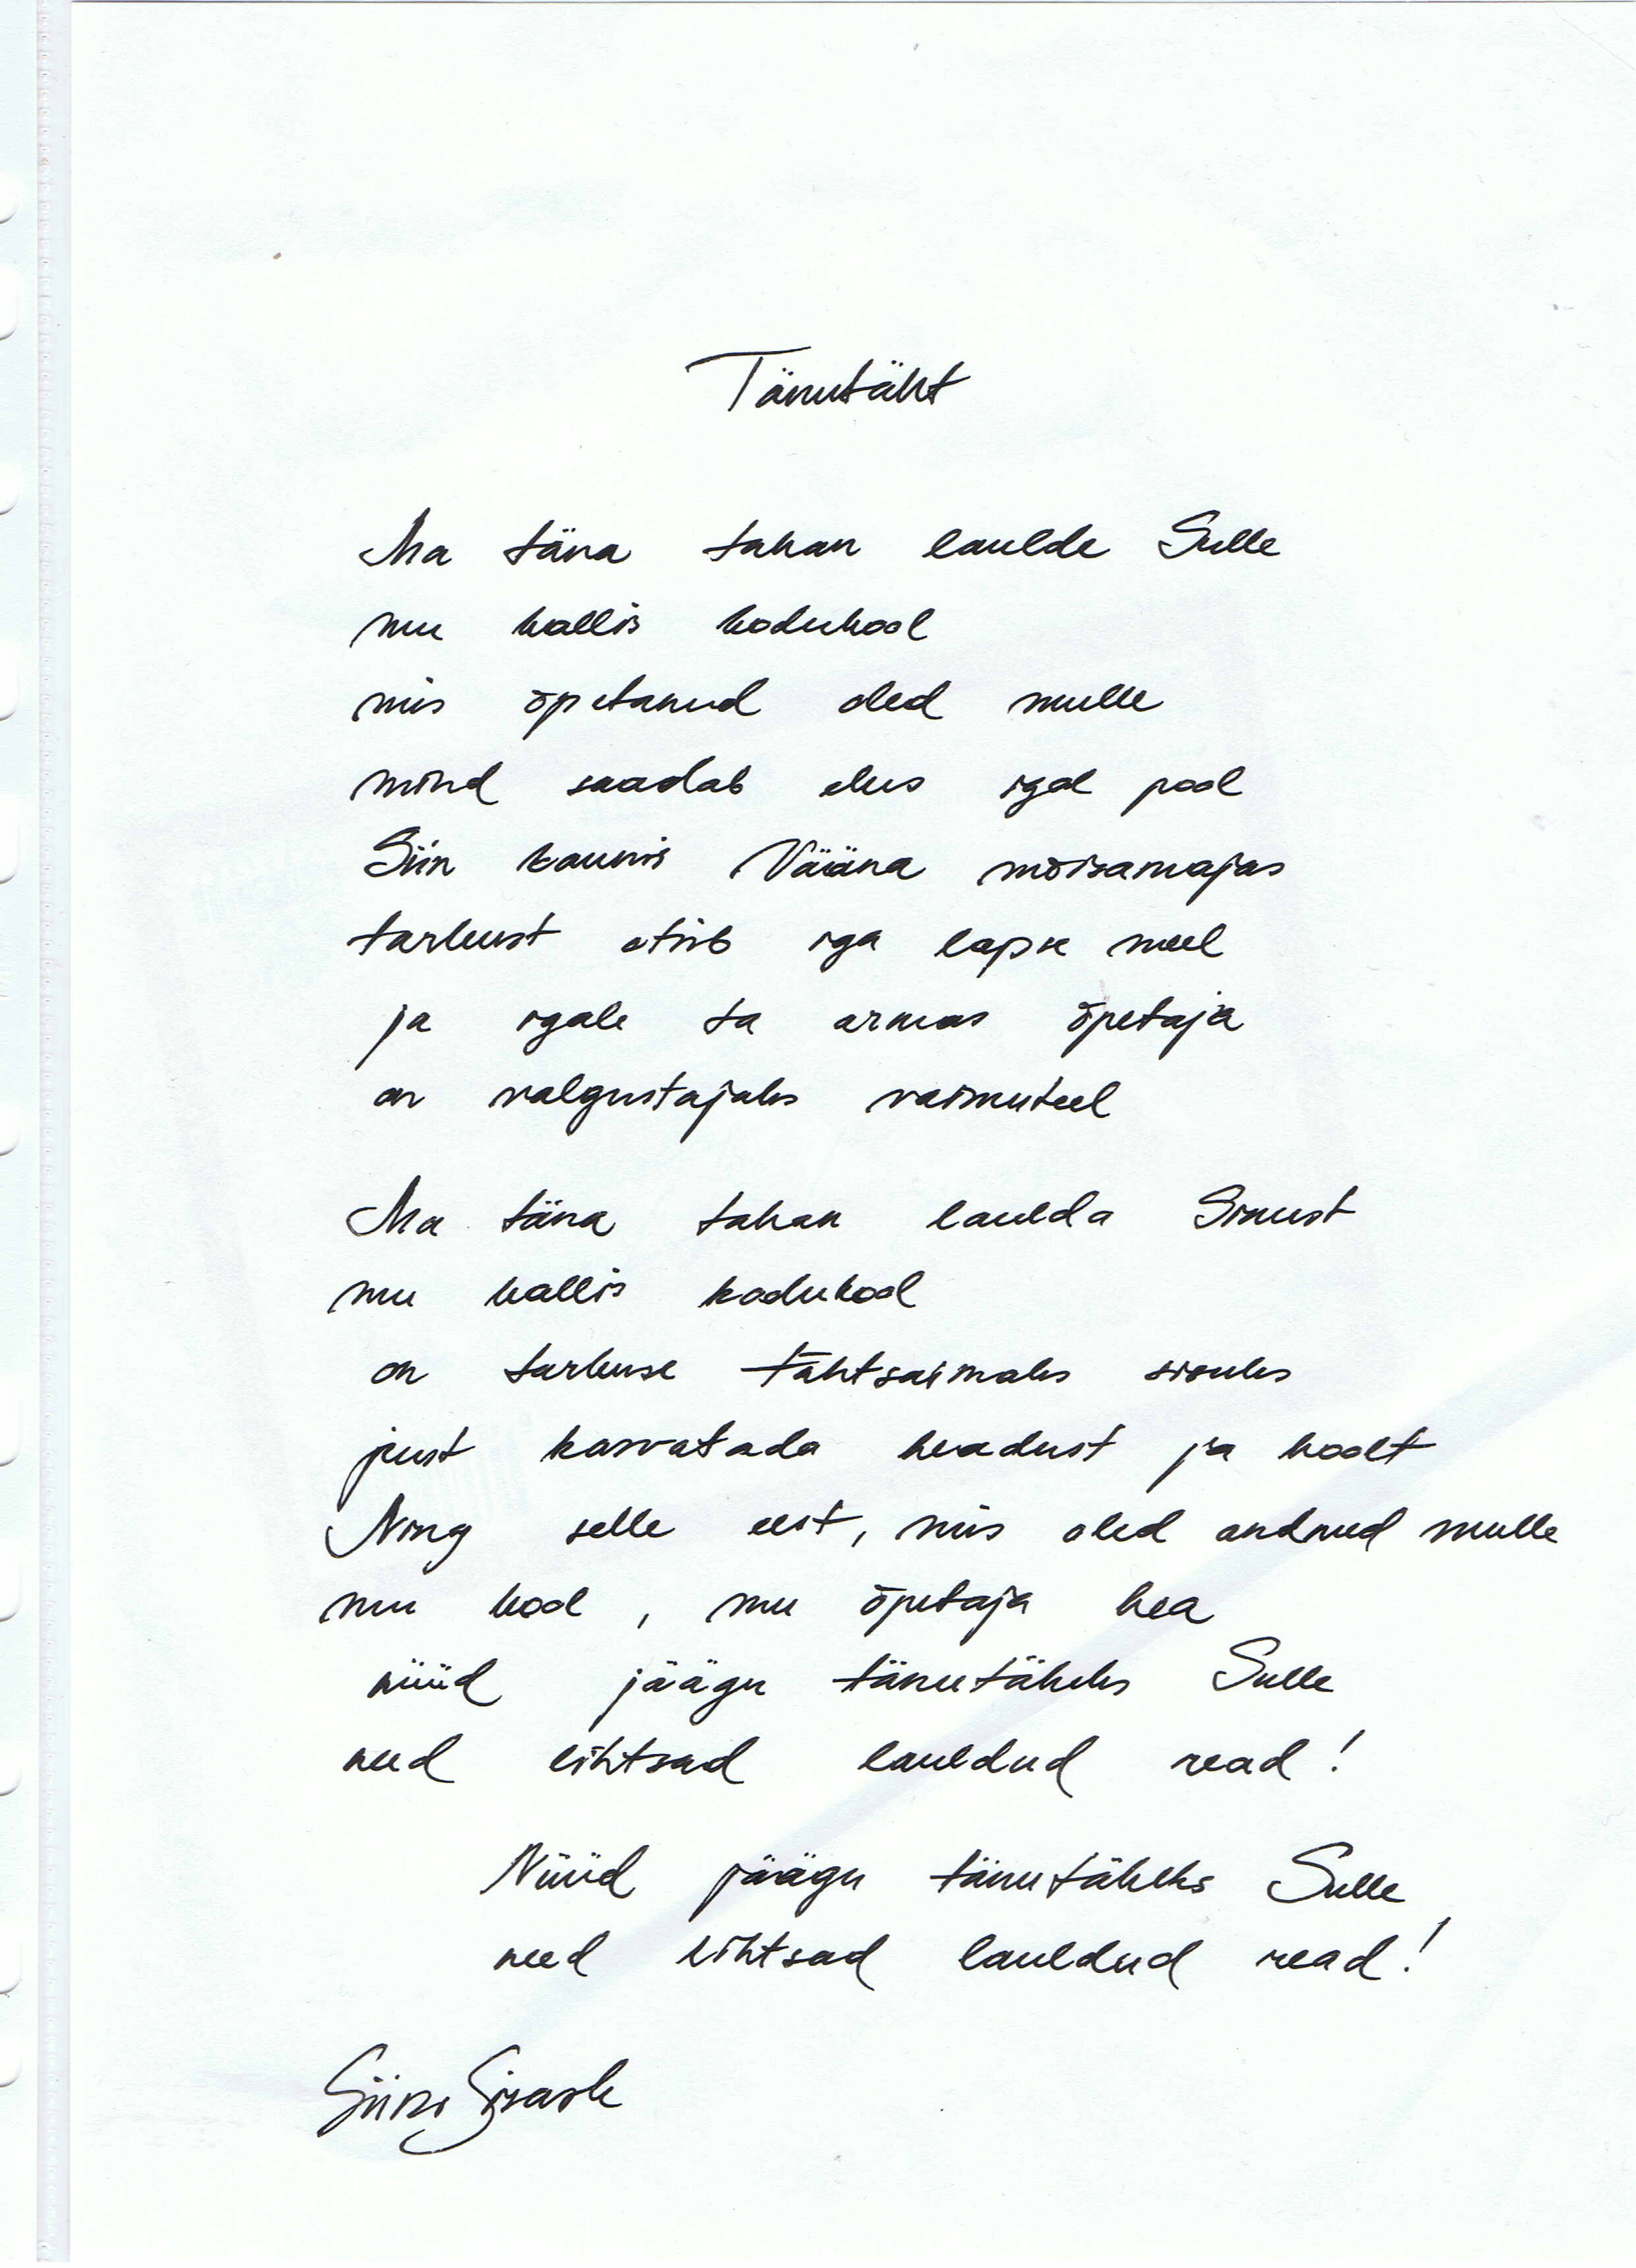 Tänutäht
Ma täna tahan laulda Sulle
mu kallis kodukool
mis õpetanud oled mulle
mind saadab elus igal pool
Siin kaunis Vääna mõisamajas
tarkust otsib iga lapse meel
ja igale ta armas õpetaja
on valgustajaks vaimuteel
Ma täna tahan laulda Sinust
mu kallis kodukool
on tarkuse tähtsaimaks sisuks
just kasvatada headust ja hoolt
Ning selle eest, mis oled andnud mulle
mu kool, mu õpetaja hea
nüüd jäägu tänutäheks Sulle
need lihtsad lauldud read!
Nüüd jäägu tänutäheks Sulle
need lihtsad lauldud read!
Siiri Sisask